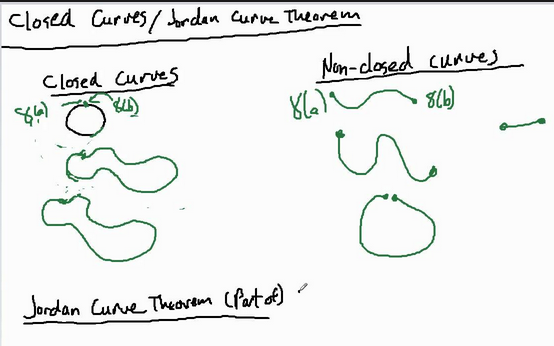 Closed Curves/Jordan Curve Theorem
Closed Curves
Non-closed curves
γ(a) γ(b)
γ(a) γ(b)
Jordan Curve Theorem (Part of)